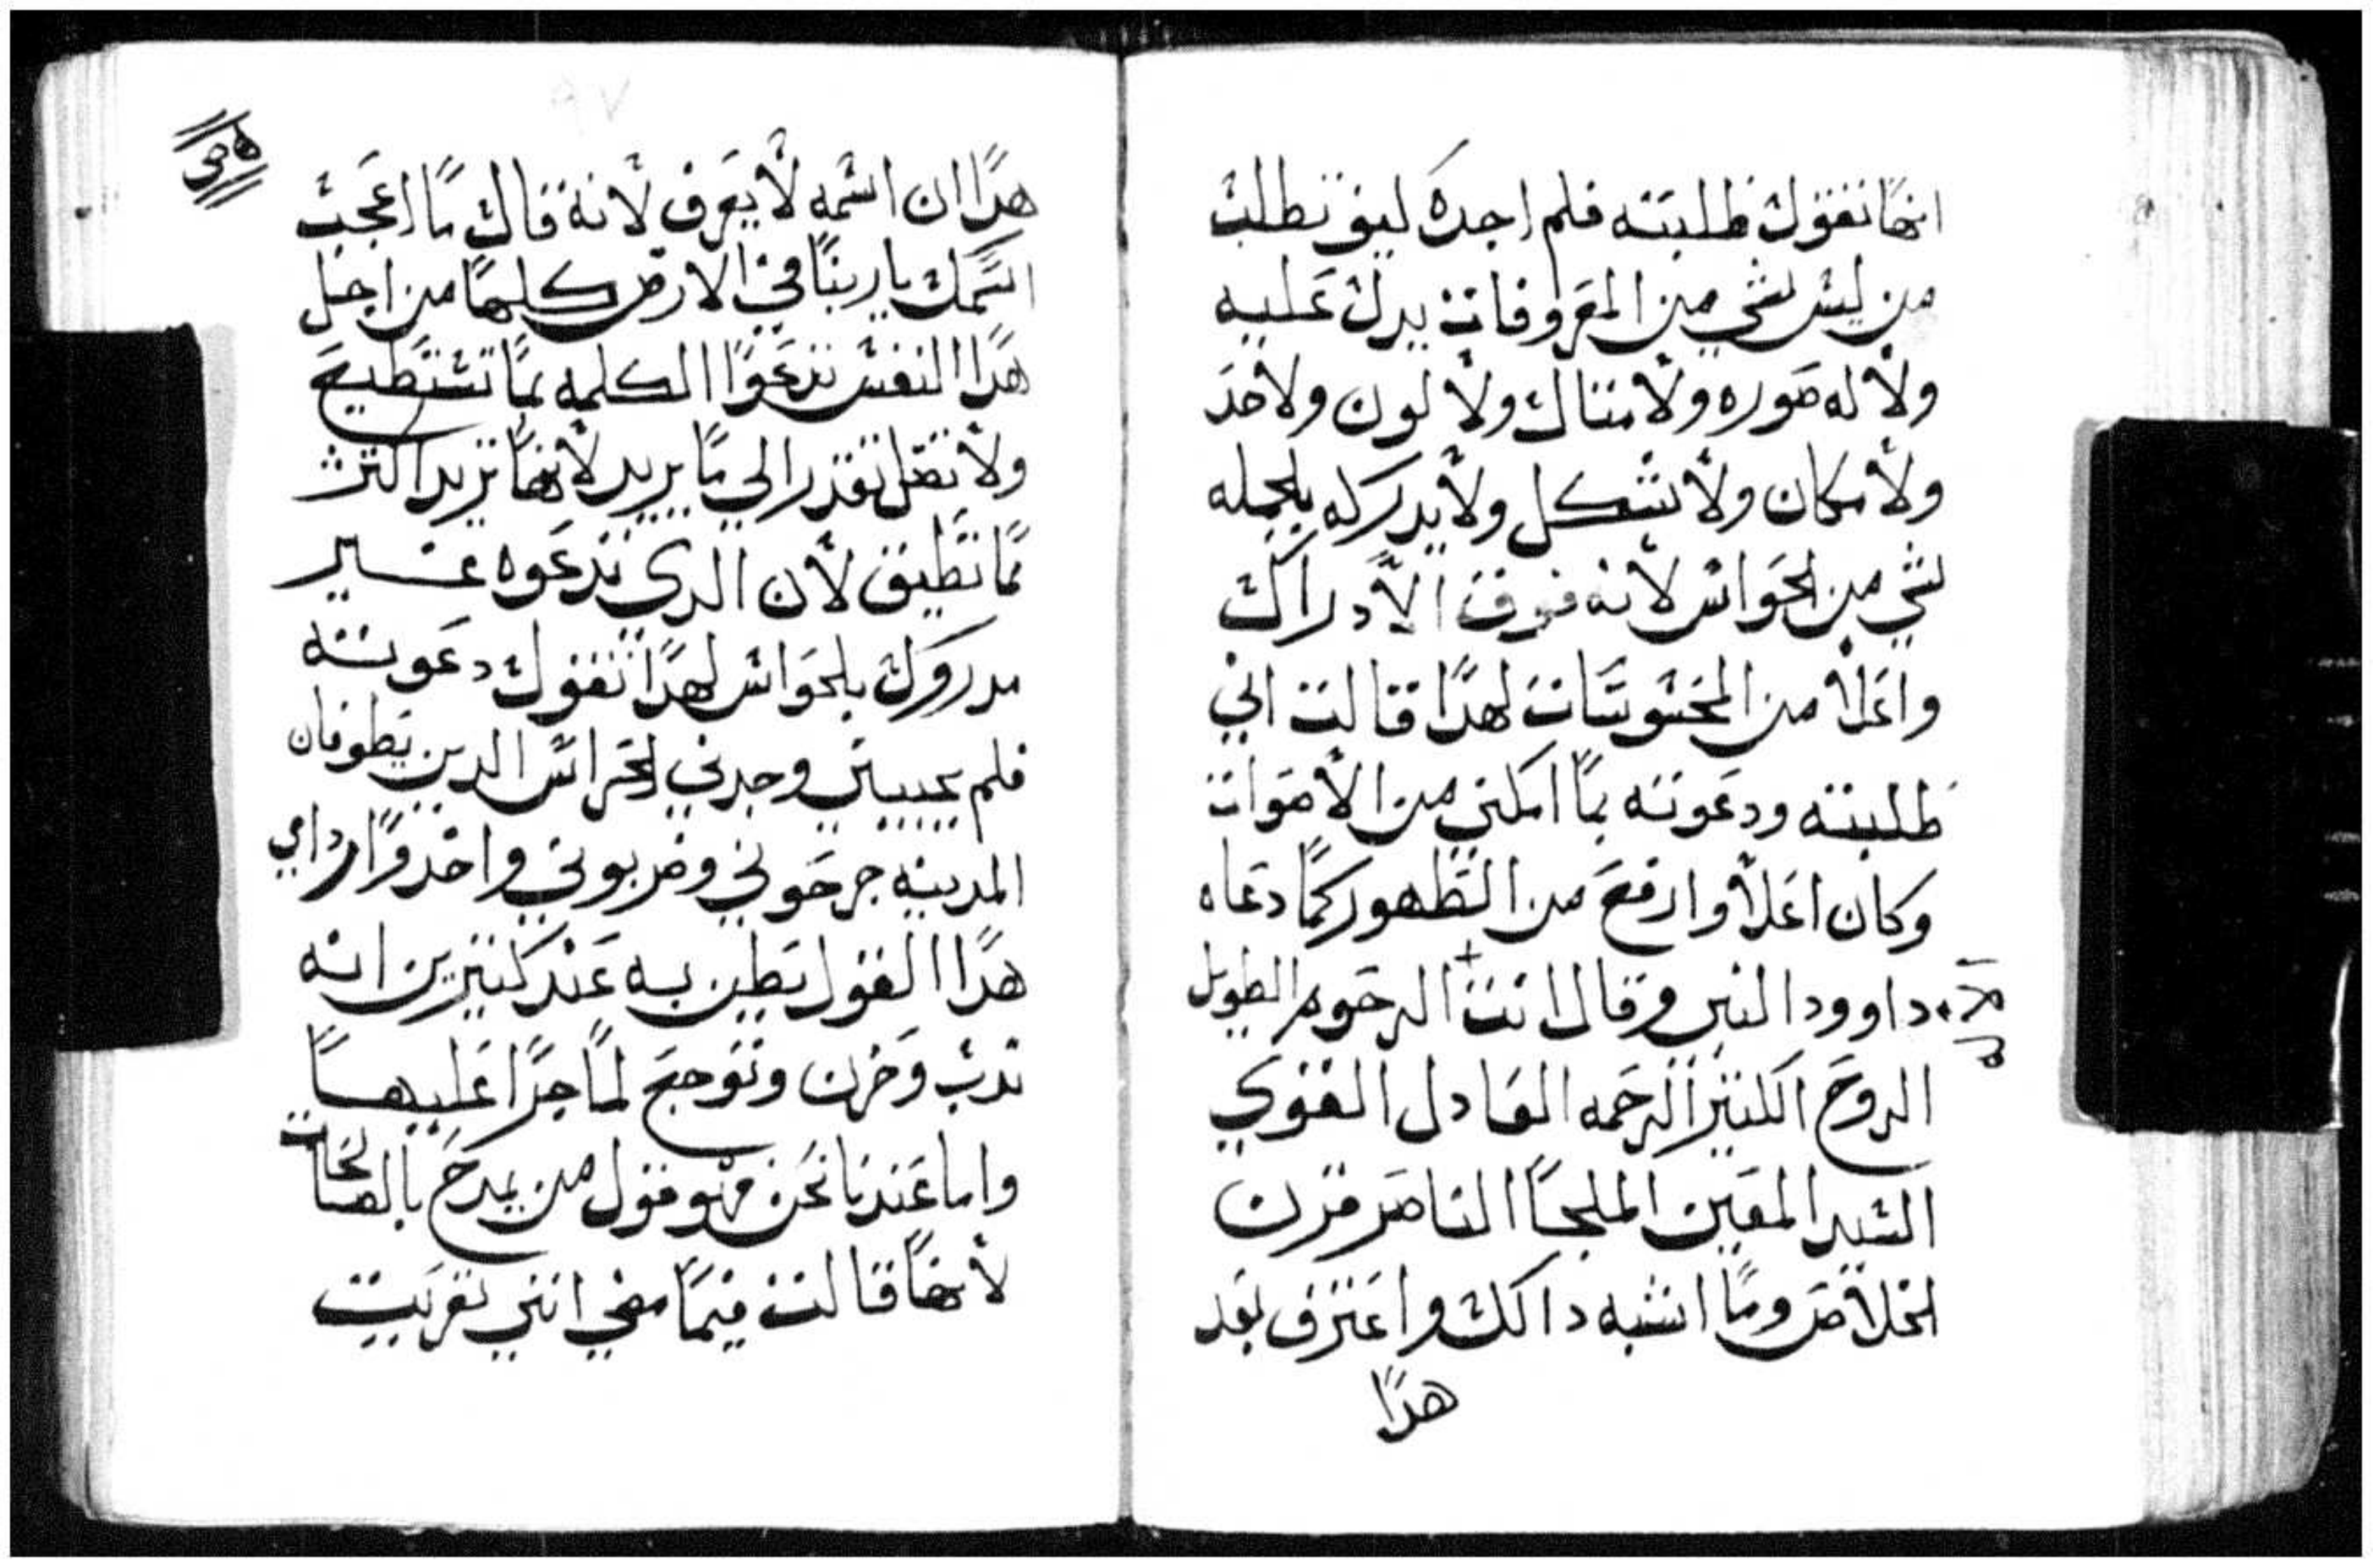 انها تقول طلبته فلم اجده كيف تطلب
من ليس شي من المعروفات يدل عليه
ولا له صوره ولا مثال ولا لون ولا حد
ولا مكان ولا شكل ولا يدركه بلجمله
شي من الحواس لانه فوق الادراك
واعلا من المحسوسات لهدا قالت اني
طلبته ودعوته بما امكني من الاصوات
وكان اعلا وارفع من الظهور كما دعاه
داوود النبي وقال انت الرحوم الطويل
الروح الكثير الرحمه العادل القوي
السيد المعين الملجا الناصر قرن
الخلاص وما اشبه دالك واعترف بعد
هدا
هدا ان اسمه لا يعرف لانه قال ما اعجب
اسمك ياربنا في الارض كلها من اجل
هدا النفس تدعوا الكلمه بما تستطيع
ولا تقدر الي ما يريد لانها تريد اكثر
مما تطيق لان الدي تدعوه غير
مدروك بلحواس لهدا تقول دعوته
فلم يجيبني وجدني الحراس الدين يطوفان
المدينه جرحوني وضربوني واخدوا ردايي
هدا القول يظن به عند كثيرين انه
ندب وحزن وتوجع لما جرا عليها
واما عندنا نحن فهو قول من يمدح بالصالحات
لانها قالت فيما مضي انني تعريت